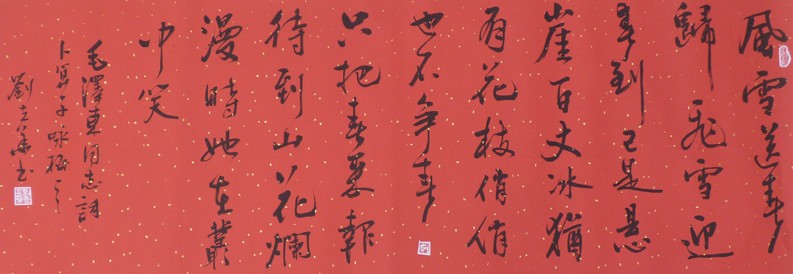 風雪送春
歸飛雪迎
春到已是懸
崖百丈冰猶
有花枝俏俏
也不争春
只把春來報
待到山花爛
漫時她在叢
中笑
毛澤東同志詞
卜算子咏梅
劉立